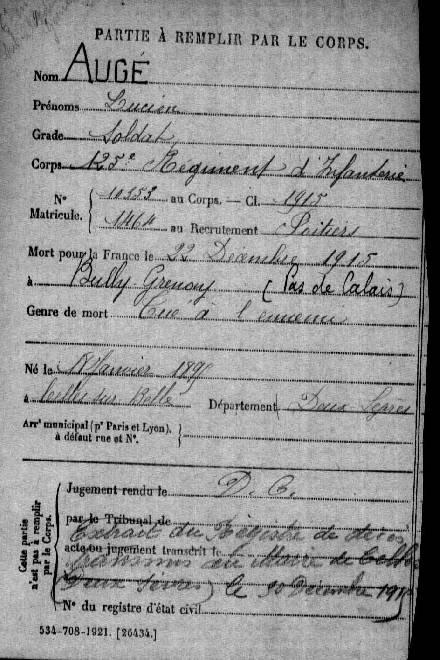 PARTIE À REMPLIR PAR LE CORPS.
Nom AUGÉ
Prénoms Lucien
Grade Soldat
Corps 125e Régiment d'Infanterie
N° Matricule. { 10353 au Corps. — Cl. 1915
1464 au Recrutement Poitiers
Mort pour la France le 22 Décembre 1915
à Bully Grenay (Pas de Calais)
Genre de mort Tué à l'ennemi
Né le 18 Janvier 189
à Celles sur Belle Département Deux Sèvres
Arr' municipal (p' Paris et Lyon), à défaut rue et N°. }
Cette partie n'est pas à remplir par le Corps.
Jugement rendu le D. C.
par le Tribunal de
Extrait du Registre de décès
acte ou jugement transcrit le
transmis au Maire de Celles
(Deux Sèvres) le 30 Décembre 191
N° du registre d'état civil
534-708-1921. [26434.]